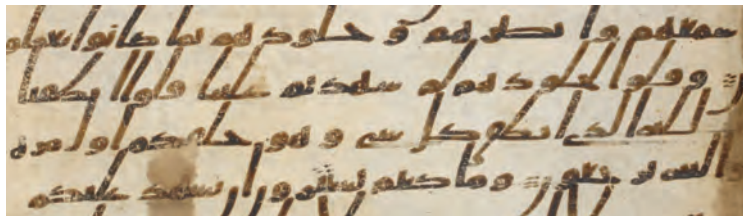 سمعهم وابصرهم وجلودهم بما كانوا يعملو
ن وقلوا لجلودهم لم شهدتم علينا قلوا انطقنا
الله الذي انطق كل شي وهو خلقكم اول مره و
اليه ترجعون وما كنتم تستترون ان يشهد عليكم